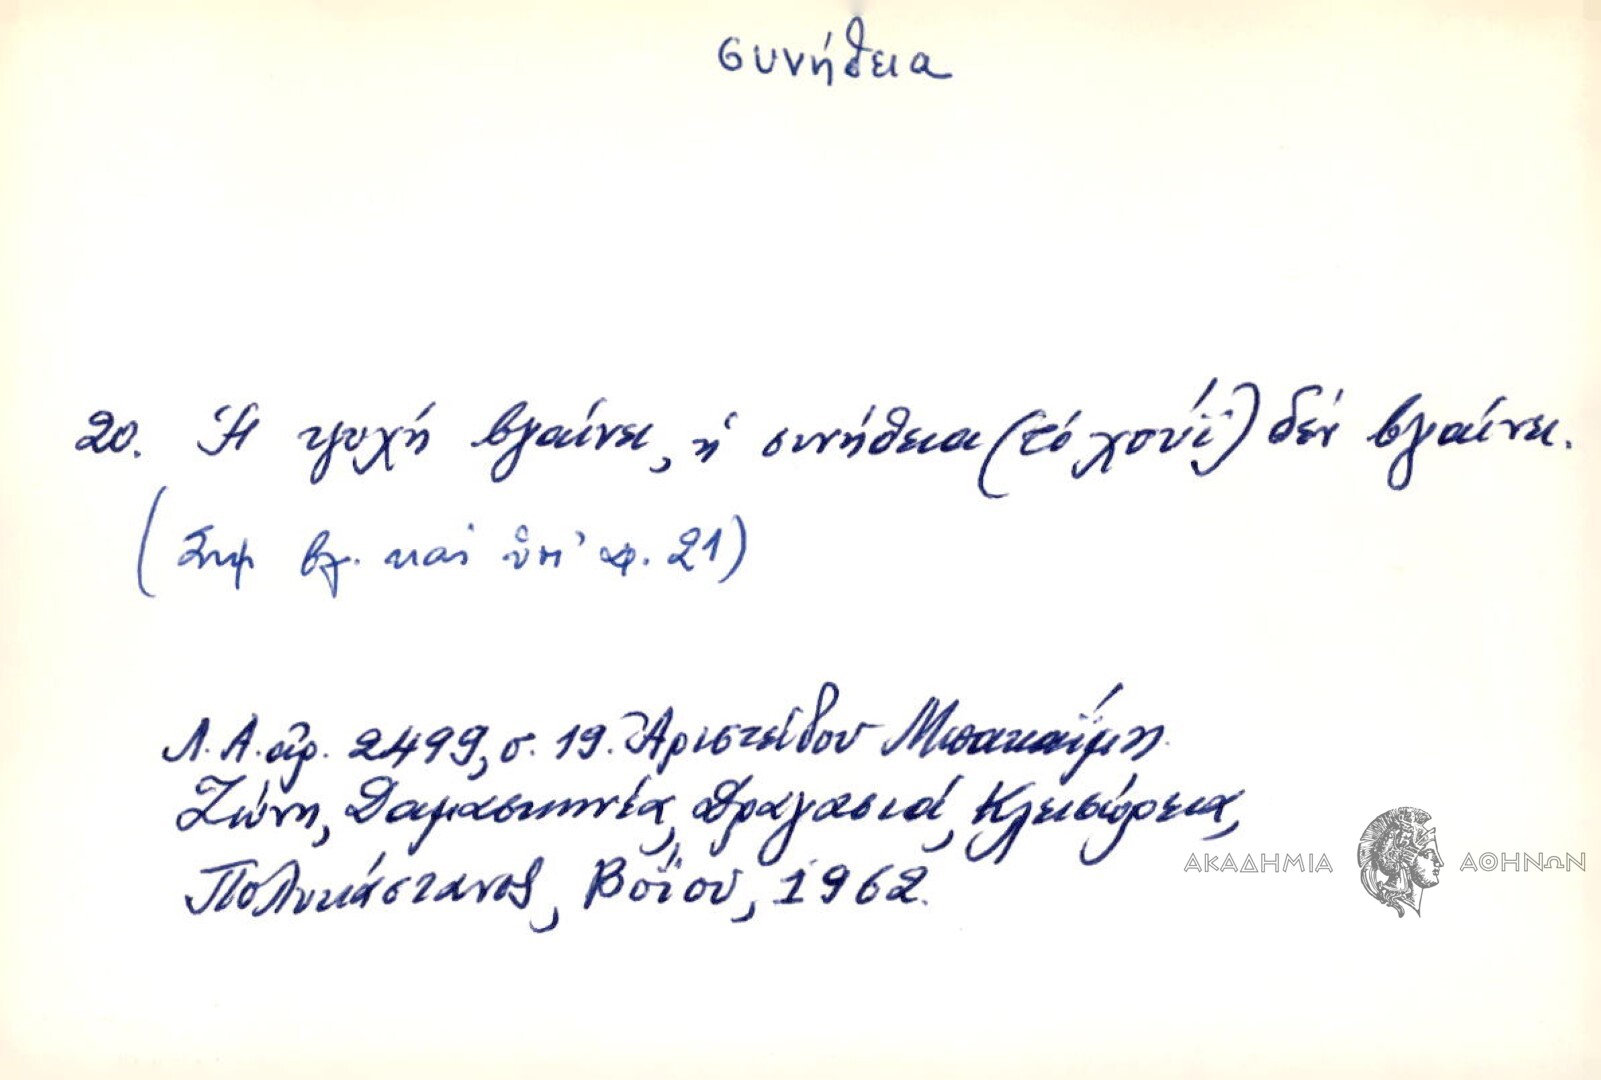 συνήθεια
20. Ἡ ψυχή βγαίνει, ἡ συνήθεια (τό χούϊ) δέν βγαίνει.
(Σημ βλ. καί ὑπ' ἀρ. 21)
Λ.Α. ἀρ. 2499, σ. 19. Ἀριστείδου Μπακαΐμη
Ζώνη, Δαμασκηνέα, Δραγασιά, Κλεισώρεια,
Πολυκάστανος, Βοΐου, 1962.
ΑΚΑΔΗΜΙΑ ΑΘΗΝΩΝ